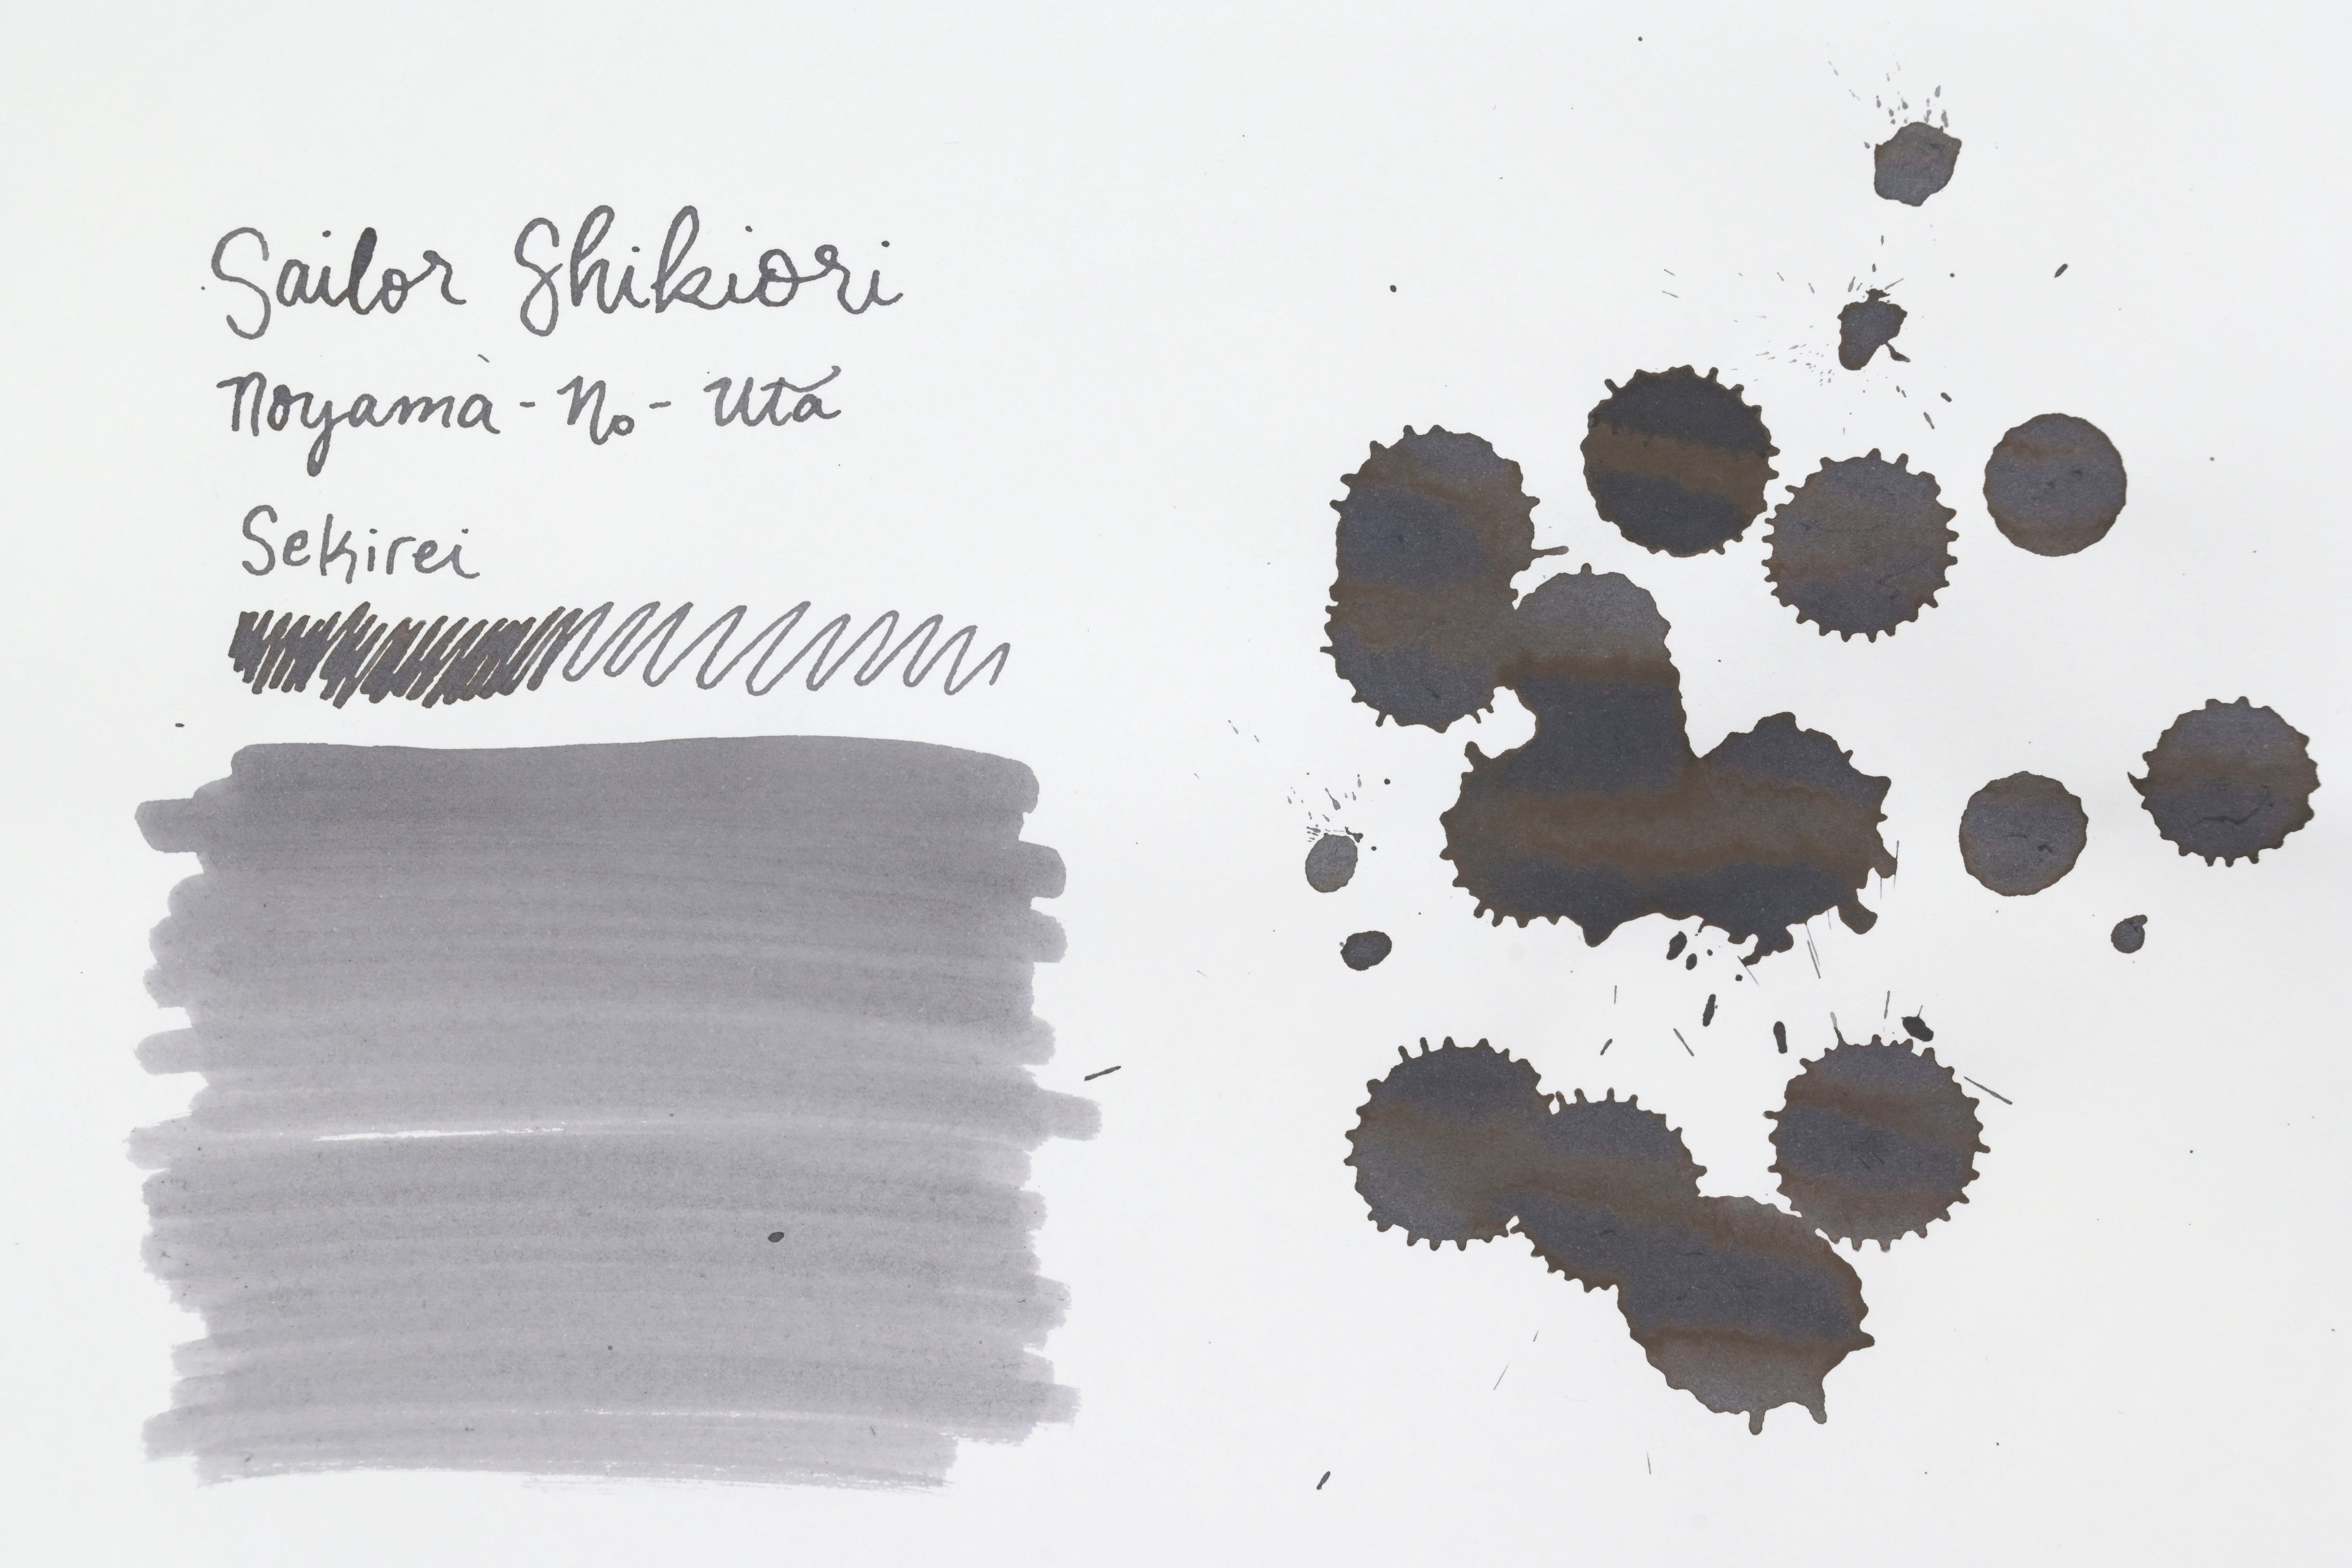 Sailor Shikiori
Noyama-No-Uta
Sekirei